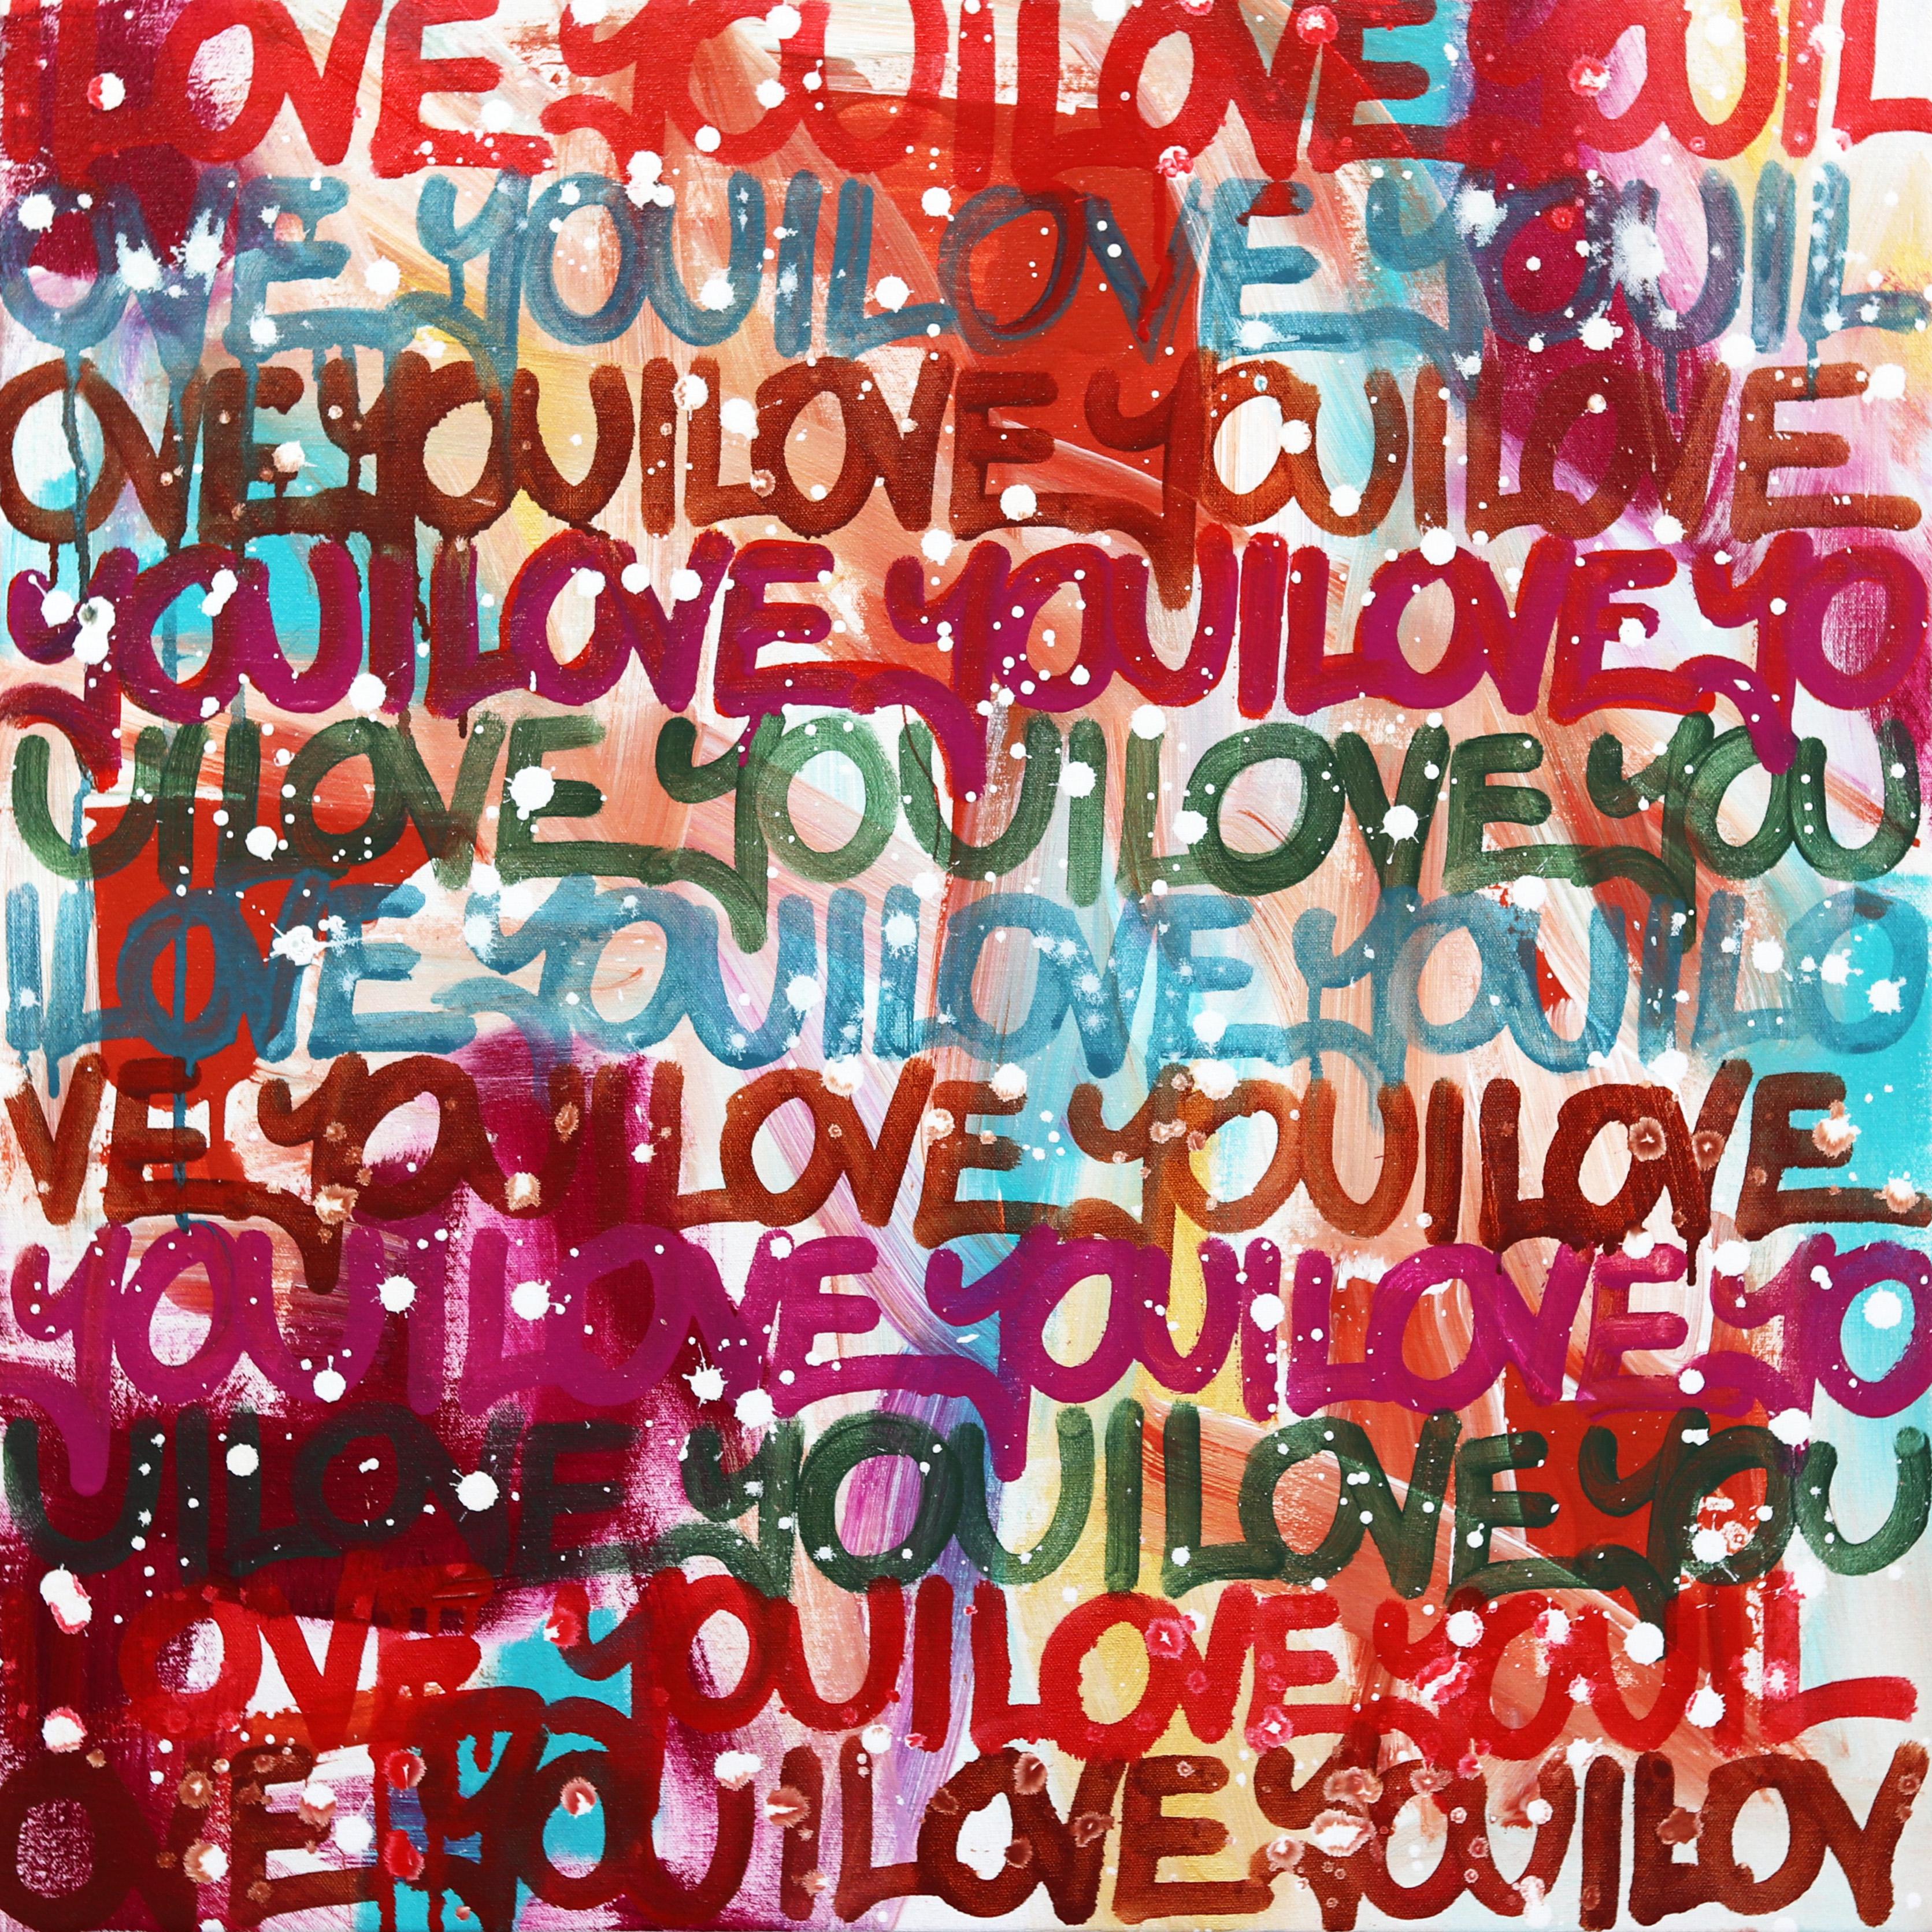 ILOVE YOUILOVE YOUIL
OVE YOUILOVE YOUIL
OVEYOUILOVE YOUILOVE
YOUILOVE YOUILOVE YO
UILOVE YOUILOVE YOU
ILOVE YOUILOVE YOUILO
VE YOUILOVE YOUILOVE
YOUILOVE YOUILOVE YO
UILOVE YOUILOVE YOU
ILOVE YOUILOVE YOUIL
OVE YOUILOVE YOUILOV